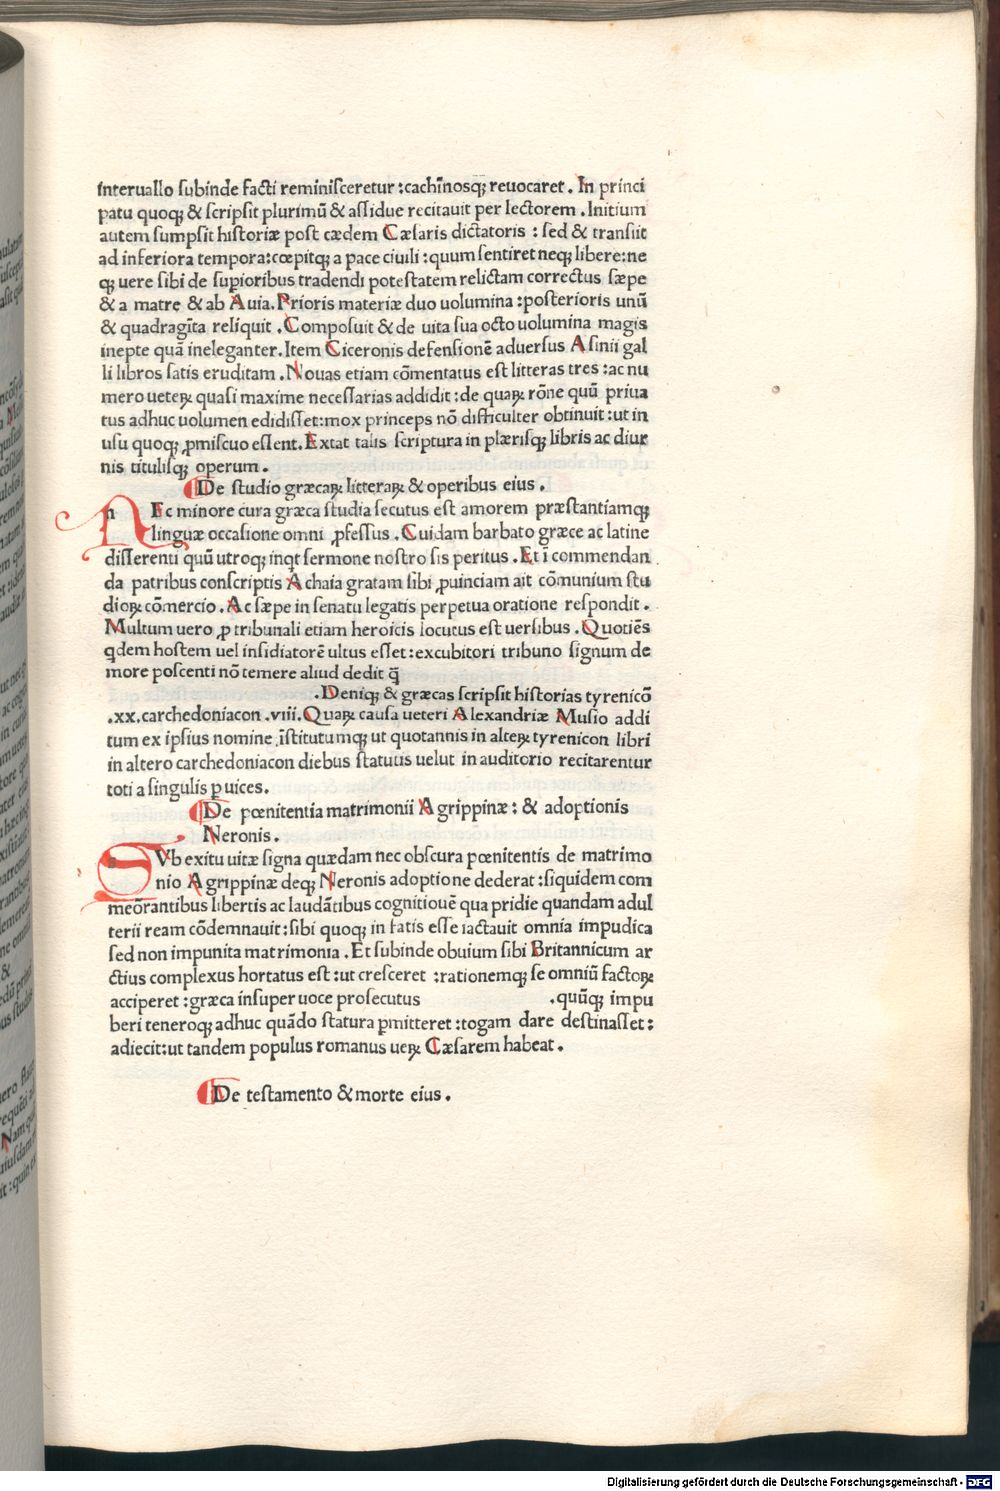 interuallo subinde facti reminisceretur :cachīnosqꝫ reuocaret . In princi
patu quoqꝫ & scripsit plurimū & assidue recitauit per lectorem . Initium
autem sumpsit historiæ post cædem Cæsaris dictatoris : sed & transiit
ad inferiora tempora:cœpitqꝫ a pace ciuili :quum sentiret neqꝫ libere:ne
qꝫ uere sibi de supioribus tradendi potestatem relictam correctus sæpe
& a matre & ab Auia. Prioris materiæ duo uolumina :posterioris unū
& quadragīta reliquit . Composuit & de uita sua octo uolumina magis
inepte quā ineleganter. Item Ciceronis defensionē aduersus Asinii gal
li libros satis eruditam . Nouas etiam cōmentatus est litteras tres :ac nu
mero ueteꝝ quasi maxime necessarias addidit :de quaꝝ rōne quū priua
tus adhuc uolumen edidisset:mox princeps nō difficulter obtinuit :ut in
usu quoqꝫ ꝓmiscuo essent. Extat talis scriptura in plærisqꝫ libris ac diur
nis titulisqꝫ operum .
De studio græcaꝝ litteraꝝ & operibus eius .
n Ec minore cura græca studia secutus est amorem præstantiamqꝫ
linguæ occasione omni ꝓfessus . Cuidam barbato græce ac latine
disserenti quū utroqꝫ inqt sermone nostro sis peritus . Et ī commendan
da patribus conscriptis Achaia gratam sibi ꝓuinciam ait cōmunium stu
dioꝝ cōmercio . Ac sæpe in senatu legatis perpetua oratione respondit .
Multum uero ꝓ tribunali etiam heroicis locutus est uersibus . Quotiēs
qdem hostem uel insidiatorē ultus esset :excubitori tribuno signum de
more poscenti nō temere aliud dedit q̄
. Deniqꝫ & græcas scripsit historias tyrenicō
.xx. carchedoniacon .viii. Quaꝝ causa ueteri Alexandriæ Musio addi
tum ex ipsius nomine īstitutumqꝫ ut quotannis in alteꝝ tyrenicon libri
in altero carchedoniacon diebus statutis uelut in auditorio recitarentur
toti a singulis p uices.
De pœnitentia matrimonii Agrippinæ : & adoptionis
Neronis .
s Vb exitu uitæ signa quædam nec obscura pœnitentis de matrimo
nio Agrippinæ deqꝫ Neronis adoptione dederat :siquidem com
meōrantibus libertis ac laudātibus cognitiouē qua pridie quandam adul
terii ream cōdemnauit :sibi quoqꝫ in fatis esse iactauit omnia impudica
sed non impunita matrimonia . Et subinde obuium sibi Britannicum ar
ctius complexus hortatus est :ut cresceret :rationemqꝫ se omniū factoꝝ
acciperet :græca insuper uoce prosecutus .quūqꝫ impu
beri teneroqꝫ adhuc quādo statura pmitteret :togam dare destinasset :
adiecit:ut tandem populus romanus ueꝝ Cæsarem habeat .
De testamento & morte eius .
Digitalisierung gefördert durch die Deutsche Forschungsgemeinschaft - DFG